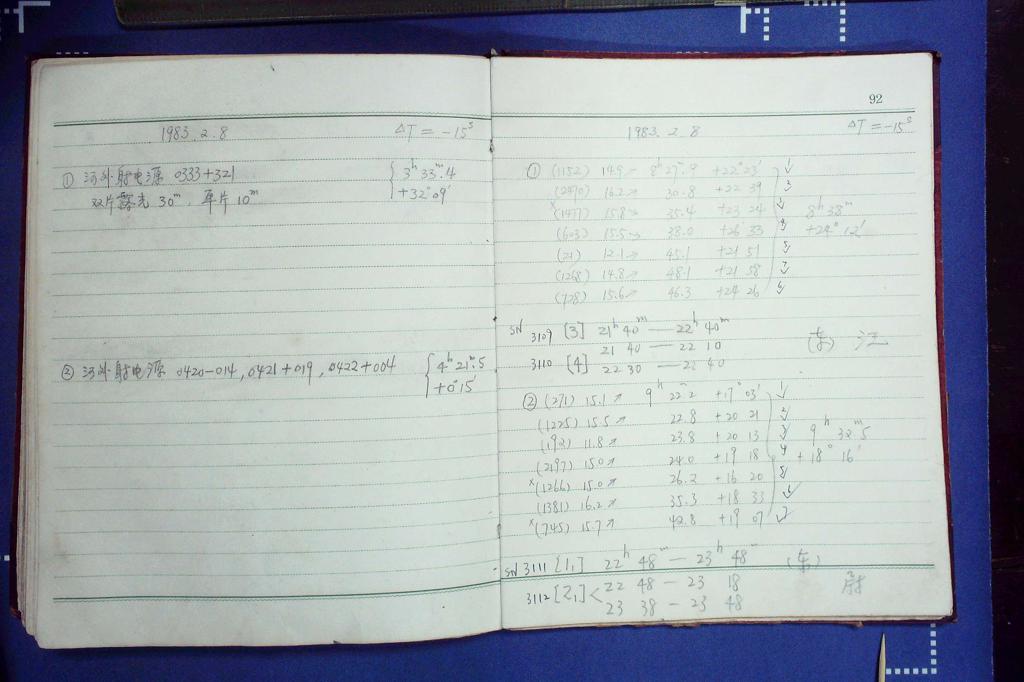 1983.2.8 ΔT=-15ˢ
① 河外射电源 0333+321 { 3ʰ 33ᵐ.4
双片露光 30ᵐ, 单片 10ᵐ +32°09′
② 河外射电源 0420-014, 0421+019, 0422+004 { 4ʰ 21ᵐ.5
+0°15′
92
1983.2.8 ΔT=-15ˢ
① (1152) 14.9 ↗ 8ʰ 27ᵐ.9 +22°23′ 1
(2490) 16.2 ↗ 30.8 +22 39
×(1477) 15.8 ↗ 35.4 +23 24 8ʰ38ᵐ
(603) 15.5 ↗ 38.0 +26 33 +24°12′
(21) 12.1 ↗ 45.1 +21 51
(1268) 14.8 ↗ 48.1 +21 58
(728) 15.6 ↗ 46.3 +24 26
SN 3109 [3] 21ʰ 40ᵐ — 22ʰ 40ᵐ
21 40 — 22 10 (东) 江
3110 [4] 22 30 — 22 40
② (271) 15.1 ↗ 9ʰ 22ᵐ.2 +17°03′ 1
(1225) 15.5 ↗ 22.8 +20 21 2
(192) 11.8 ↗ 23.8 +20 13 3 9ʰ 32ᵐ.5
(2197) 15.0 ↗ 24.0 +19 18 4 +18° 16′
×(1266) 15.0 ↗ 26.2 +16 20 5
(1381) 16.2 ↗ 35.3 +18 33 6
×(745) 15.7 ↗ 42.8 +19 07 7
SN 3111 [1₁] 22ʰ 48ᵐ — 23ʰ 48ᵐ (东)
3112 [2₁] < 22 48 — 23 18 尉
23 38 — 23 48